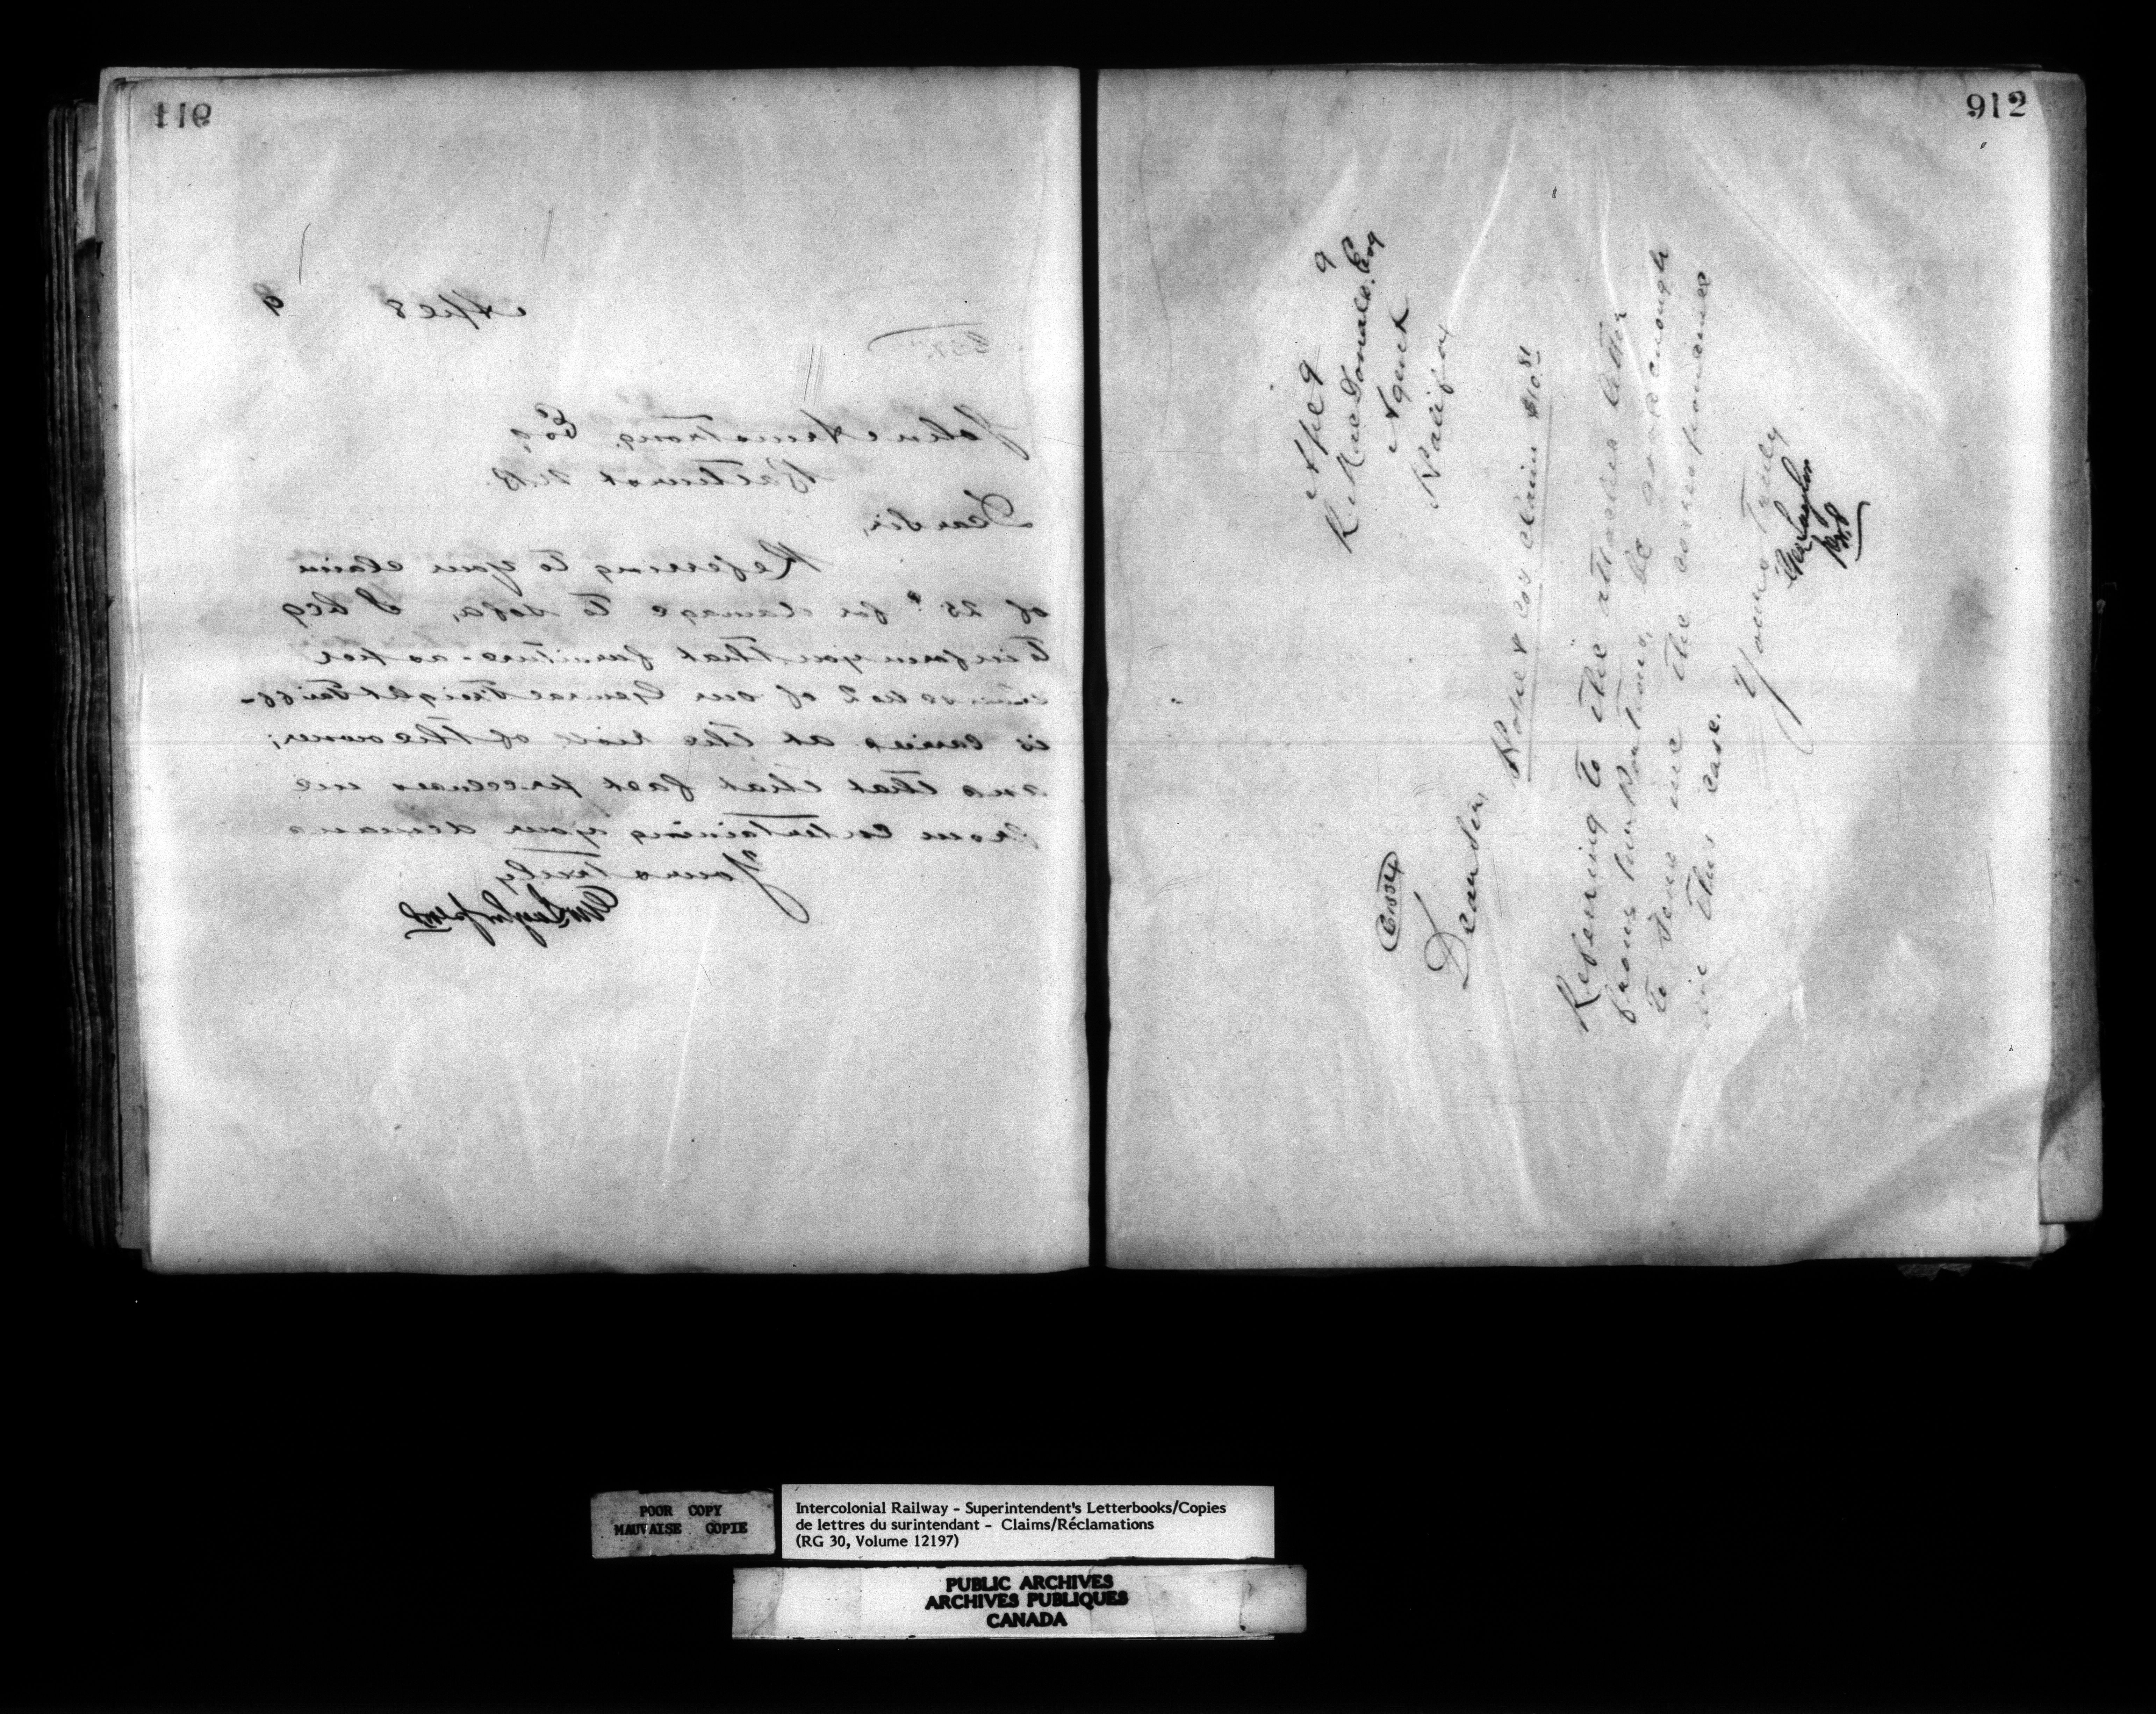 911
Apl 8 9
John Armstrong Esq
Bathurst N.B.
Dear Sir,
Referring to your claim
of 25¢ for damage to sofa, I beg
to inform you that furniture - as per
no 2 of our General Freight Tariff -
is carried at the risk of the owner;
and that that fact precludes me
from entertaining your demand
Yours truly
912
Apl 9 9
R MacDonald, Esq
Agent
Halifax
Dear Sir,
& Co's claim $10.81
Referring to the attached letter
from be good enough
to send me the correspondence
in this case.
Yours truly
POOR COPY
MAUVAISE COPIE
Intercolonial Railway - Superintendent's Letterbooks/Copies
de lettres du surintendant - Claims/Réclamations
(RG 30, Volume 12197)
PUBLIC ARCHIVES
ARCHIVES PUBLIQUES
CANADA